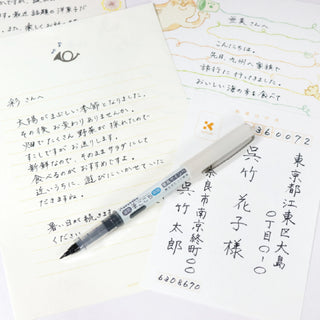 彩さんへ
太陽がまぶしい季節となりました。
その後お変わりありませんか。
畑でたくさん野菜が採れたので
すこしですがお送りします。
新鮮なので、そのままサラダにして
食べるのがおすすめですよ。
近いうちに、遊びにいかせていた
だきますね。
暑い日が続きます
ください
亜美さんへ
こんにちは。
先日、九州へ家族で
旅行に行ってきました。
おいしい海の幸を食べて
1360072
東京都江東区大島
〇丁目〇-〇
呉竹花子様
奈良市南京終町〇〇
呉竹太郎
6308670